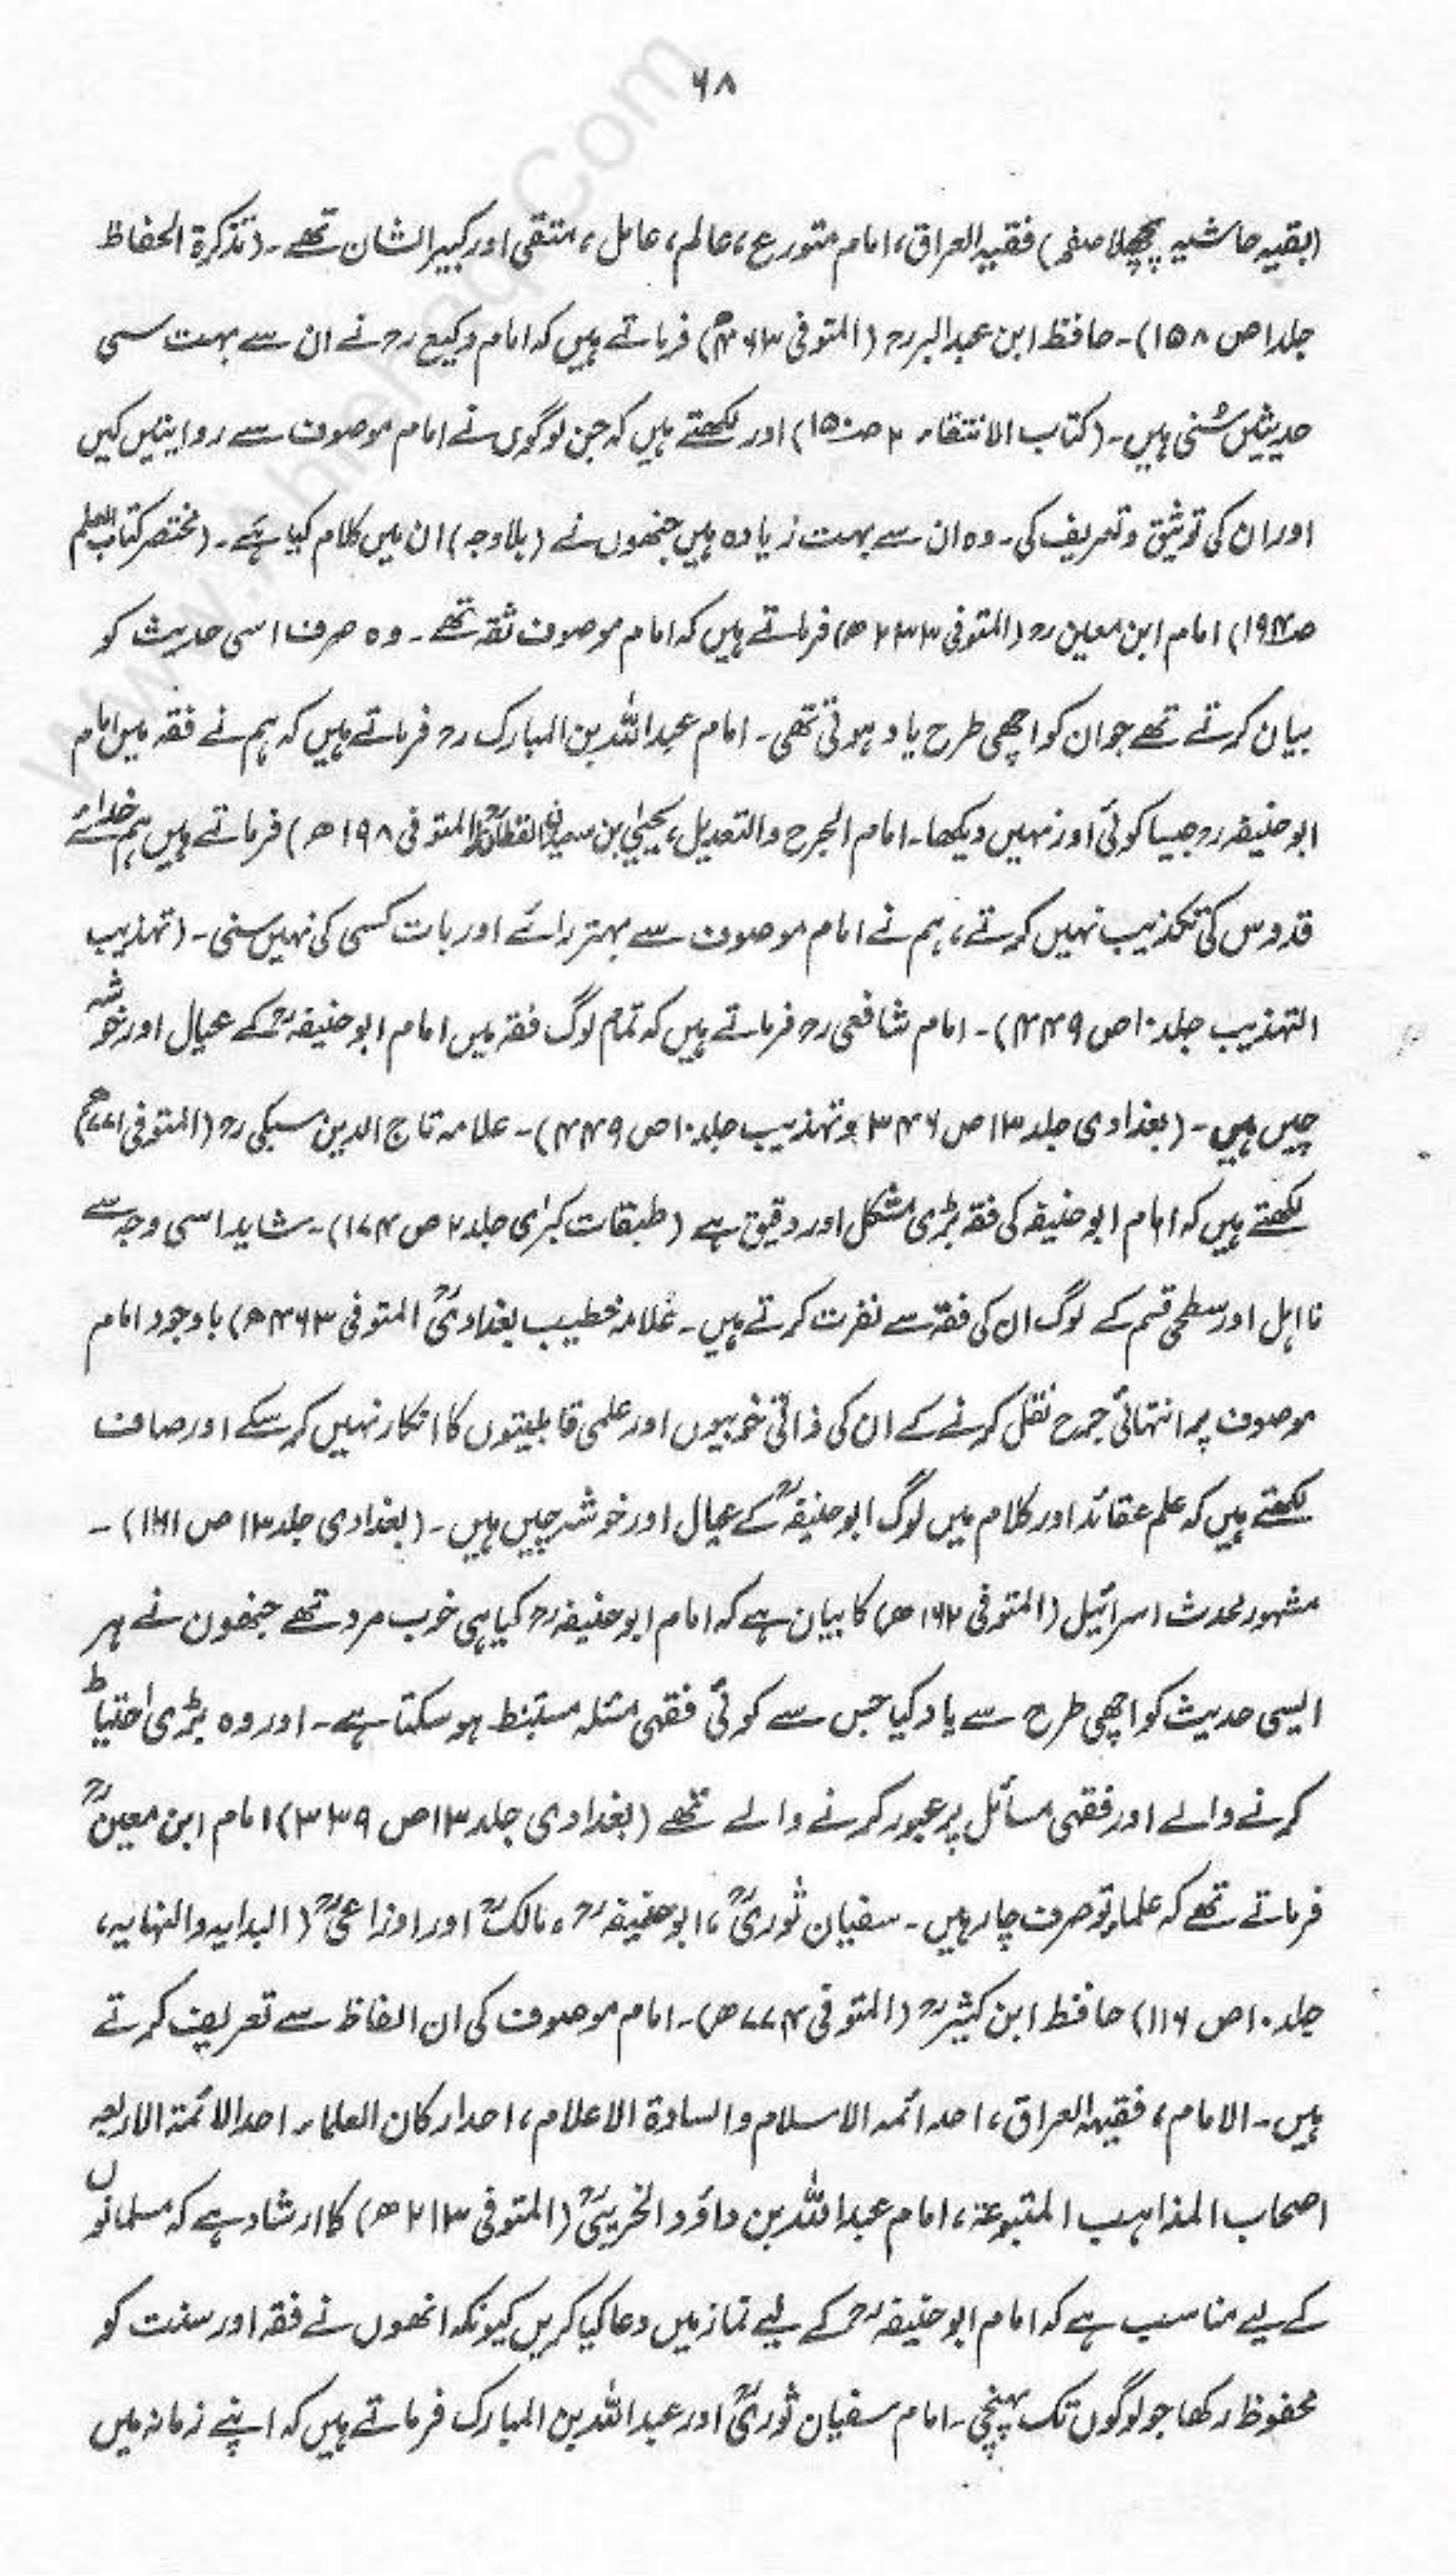 ۶۸
(بقیہ حاشیہ پچھلا صفحہ) فقیہ العراق، امام متورع، عالم، عامل، متقی اور کبیر الشان تھے۔ (تذکرۃ الحفاظ
جلد۱ ص ۱۵۸)۔ حافظ ابن عبدالبررح (المتوفی ۴۶۳ھ) فرماتے ہیں کہ امام وکیع رح نے ان سے بہت سی
حدیثیں سُنی ہیں۔ (کتاب الانتقاء ۲ صـ۱۵۰) اور لکھتے ہیں کہ جن لوگوں نے امام موصوف سے روایتیں کیں
اور ان کی توثیق و تعریف کی۔ وہ ان سے بہت زیادہ ہیں جنھوں نے (بلاوجہ) ان میں کلام کیا ہے۔ (مختصر کتاب العلم
صـ۱۹۴) امام ابن معین رح (المتوفی ۲۳۳ھ) فرماتے ہیں کہ امام موصوف ثقہ تھے۔ وہ صرف اسی حدیث کو
بیان کرتے تھے جو ان کو اچھی طرح یاد ہوتی تھی۔ امام عبداللہ بن المبارک رح فرماتے ہیں کہ ہم نے فقہ میں امام
ابوحنیفہ رح جیسا کوئی اور نہیں دیکھا۔ امام الجرح والتعدیل، یحییٰ بن سعیدن القطانؒ (المتوفی ۱۹۸ھ) فرماتے ہیں ہم خدائے
قدوس کی تکذیب نہیں کرتے، ہم نے امام موصوف سے بہتر رائے اور بات کسی کی نہیں سنی۔ (تہذیب
التہذیب جلد۱۰ ص ۴۴۹)۔ امام شافعی رح فرماتے ہیں کہ تمام لوگ فقہ میں امام ابوحنیفہؒ کے عیال اور خوشہ
چیں ہیں۔ (بغدادی جلد ۱۳ ص ۳۴۶ و تہذیب جلد۱۰ ص ۴۴۹)۔ علامہ تاج الدین سبکی رح (المتوفی ۷۷۱ھ)
لکھتے ہیں کہ امام ابوحنیفہ کی فقہ بڑی مشکل اور دقیق ہے (طبقات کبرٰی جلد۲ ص ۱۷۴)۔ شاید اسی وجہ سے
نااہل اور سطحی قسم کے لوگ ان کی فقہ سے نفرت کرتے ہیں۔ علامہ خطیب بغدادیؒ المتوفی ۴۶۳ھ) باوجود امام
موصوف پر انتہائی جرح نقل کرنے کے ان کی ذاتی خوبیوں اور علمی قابلیتوں کا انکار نہیں کر سکے اور صاف
لکھتے ہیں کہ علم عقائد اور کلام میں لوگ ابوحنیفہؒ کے عیال اور خوشہ چیں ہیں۔ (بغدادی جلد۱۳ ص ۱۶۱)۔
مشہور محدث اسرائیل (المتوفی ۱۶۲ھ) کا بیان ہے کہ امام ابوحنیفہ رح کیا ہی خوب مرد تھے جنھون نے ہر
ایسی حدیث کو اچھی طرح سے یاد کیا جس سے کوئی فقہی مسئلہ مستنبط ہو سکتا ہے۔ اور وہ بڑی احتیاط
کرنے والے اور فقہی مسائل پر عبور کرنے والے تھے (بغدادی جلد۱۳ ص ۳۳۹) امام ابن معینؒ
فرماتے تھے کہ علماء تو صرف چار ہیں۔ سفیان ثوریؒ، ابوحنیفہ رح، مالکؒ اور اوزاعیؒ (البدایہ والنہایہ،
جلد۱۰ ص ۱۱۶) حافظ ابن کثیررح (المتوفی ۷۷۴ھ)۔ امام موصوف کی ان الفاظ سے تعریف کرتے
ہیں۔ الامام، فقیہ العراق، احد ائمہ الاسلام والسادۃ الاعلام، احد ارکان العلماء احد الائمۃ الاربعہ
اصحاب المذاہب المتبوعۃ، امام عبداللہ بن داؤد الخریبیؒ (المتوفی ۲۱۳ھ) کا ارشاد ہے کہ مسلمانوں
کے لیے مناسب ہے کہ امام ابوحنیفہ رح کے لیے نماز میں دعا کیا کریں کیونکہ انھوں نے فقہ اور سنت کو
محفوظ رکھا جو لوگوں تک پہنچی۔ امام سفیان ثوریؒ اور عبداللہ بن المبارک فرماتے ہیں کہ اپنے زمانہ میں